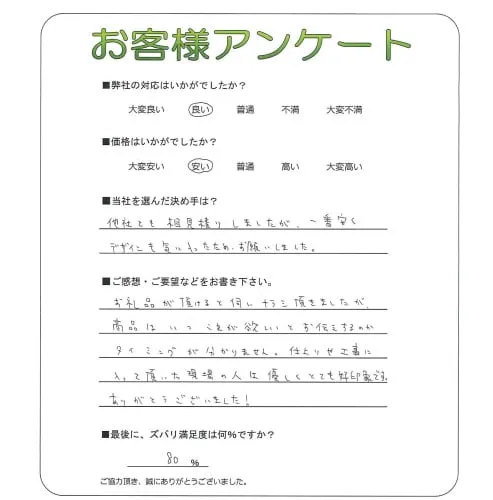 お客様アンケート
■弊社の対応はいかがでしたか？
大変良い 良い 普通 不満 大変不満
■価格はいかがでしたか？
大変安い 安い 普通 高い 大変高い
■当社を選んだ決め手は？
他社とも相見積りしましたが、一番安く
デザインも気に入ったため、お願いしました。
■ご感想・ご要望などをお書き下さい。
お礼品が頂けると伺いチラシ頂きましたが、
商品はいつ これが欲しいとお伝えするのか
タイミングが分かりません。仕上りや工事に
入って頂いた現場の人は優しくとても好印象です。
ありがとうございました！
■最後に、ズバリ満足度は何％ですか？
80 ％
ご協力頂き、誠にありがとうございました。